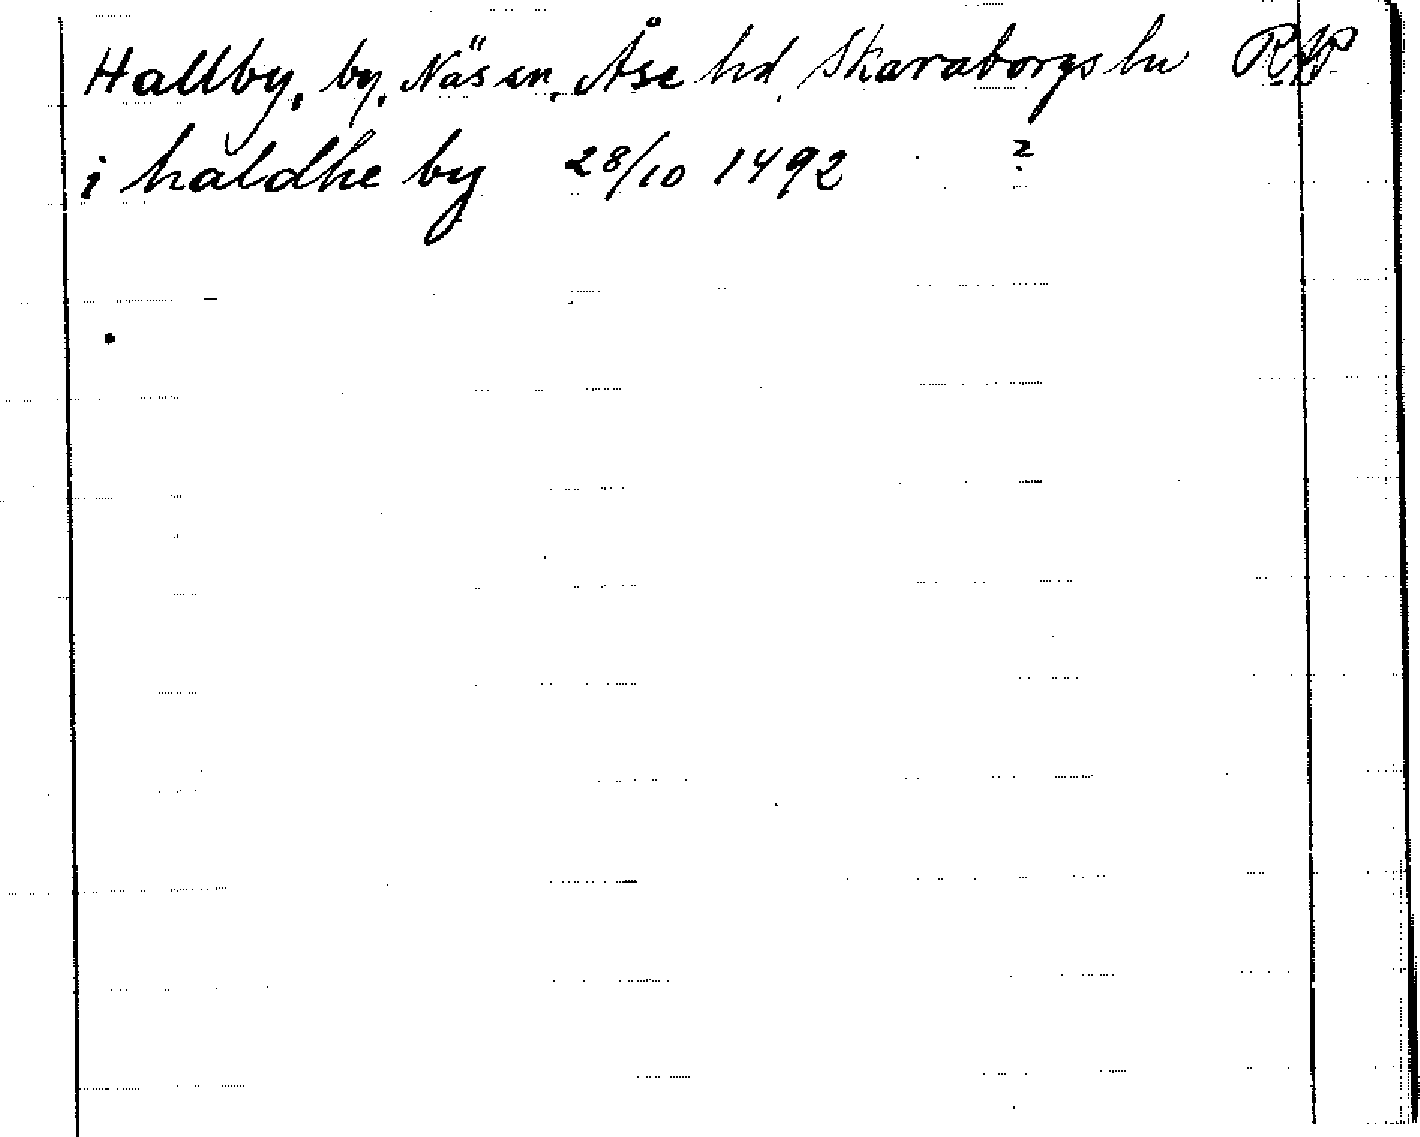 Hallby, by, Näs sn, Åse hd, Skaraborgs ln
i haldhe by 28/10 1492 ?